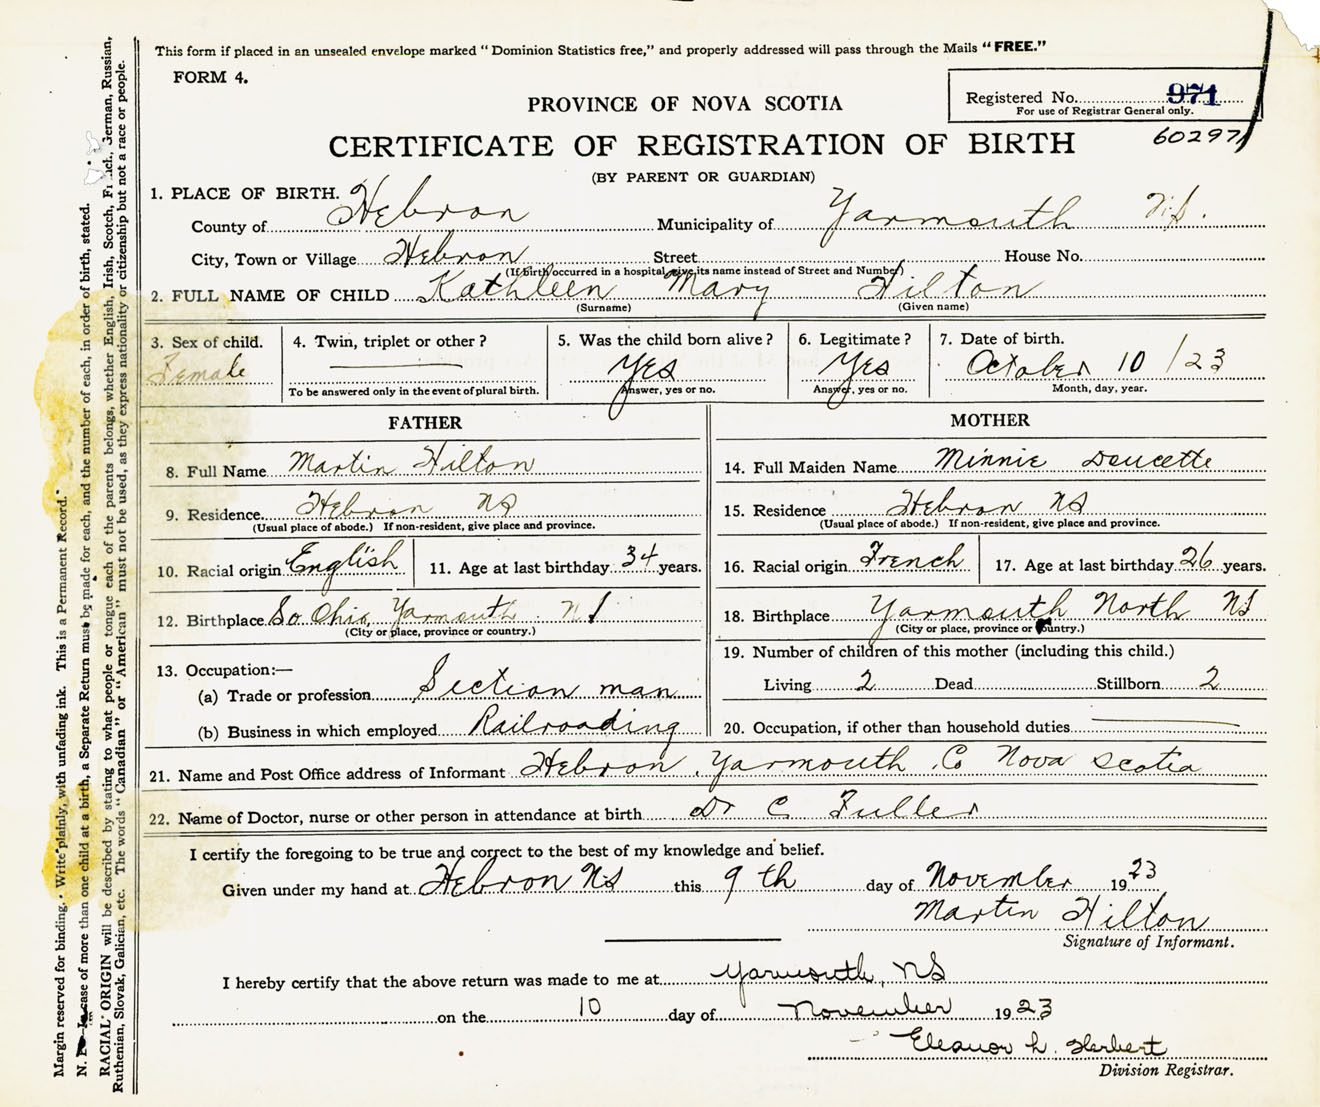 This form if placed in an unsealed envelope marked "Dominion Statistics free," and properly addressed will pass through the Mails "FREE."
FORM 4.
Registered No. 971
For use of Registrar General only.
PROVINCE OF NOVA SCOTIA
602971
CERTIFICATE OF REGISTRATION OF BIRTH
(BY PARENT OR GUARDIAN)
1. PLACE OF BIRTH.
County of Hebron Municipality of Yarmouth N.S.
City, Town or Village Hebron Street House No.
(If birth occurred in a hospital give its name instead of Street and Number)
2. FULL NAME OF CHILD Kathleen Mary Hilton
(Surname) (Given name)
3. Sex of child. 4. Twin, triplet or other? 5. Was the child born alive? 6. Legitimate? 7. Date of birth.
Female Yes Yes October 10 /23
To be answered only in the event of plural birth. Answer, yes or no. Answer, yes or no. Month, day, year.
FATHER MOTHER
8. Full Name Martin Hilton 14. Full Maiden Name Minnie Doucette
9. Residence Hebron NS 15. Residence Hebron NS
(Usual place of abode.) If non-resident, give place and province. (Usual place of abode.) If non-resident, give place and province.
10. Racial origin English 11. Age at last birthday 34 years. 16. Racial origin French 17. Age at last birthday 26 years.
12. Birthplace So Ohio, Yarmouth NS 18. Birthplace Yarmouth North NS
(City or place, province or country.) (City or place, province or country.)
13. Occupation:— 19. Number of children of this mother (including this child.)
(a) Trade or profession Section man Living 2 Dead Stillborn 2
(b) Business in which employed Railroading 20. Occupation, if other than household duties
21. Name and Post Office address of Informant Hebron, Yarmouth Co Nova Scotia
22. Name of Doctor, nurse or other person in attendance at birth Dr C Fuller
I certify the foregoing to be true and correct to the best of my knowledge and belief.
Given under my hand at Hebron NS this 9th day of November 1923
Martin Hilton
Signature of Informant.
I hereby certify that the above return was made to me at Yarmouth, NS
on the 10 day of November 1923
Eleanor L. Herbert
Division Registrar.
Margin reserved for binding. Write plainly, with unfading ink. This is a Permanent Record.
N. B.—In case of more than one child at a birth, a Separate Return must be made for each, and the number of each, in order of birth, stated.
RACIAL ORIGIN will be described by stating to what people or tongue each of the parents belongs, whether English, Irish, Scotch, French, German, Russian,
Ruthenian, Slovak, Galician, etc. The words "Canadian" or "American" must not be used, as they express nationality or citizenship but not a race or people.